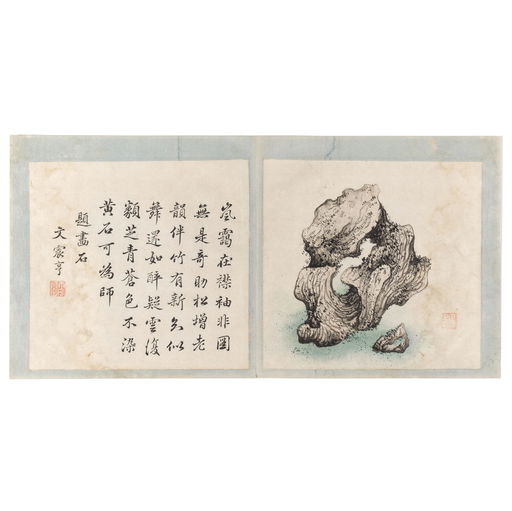 嵐靄在襟袖非圖
無是奇助松增老
韻伴竹有新姿似
舞還如醉疑雲復
類芝青蒼色不染
黄石可為師
題畫石
文震亨